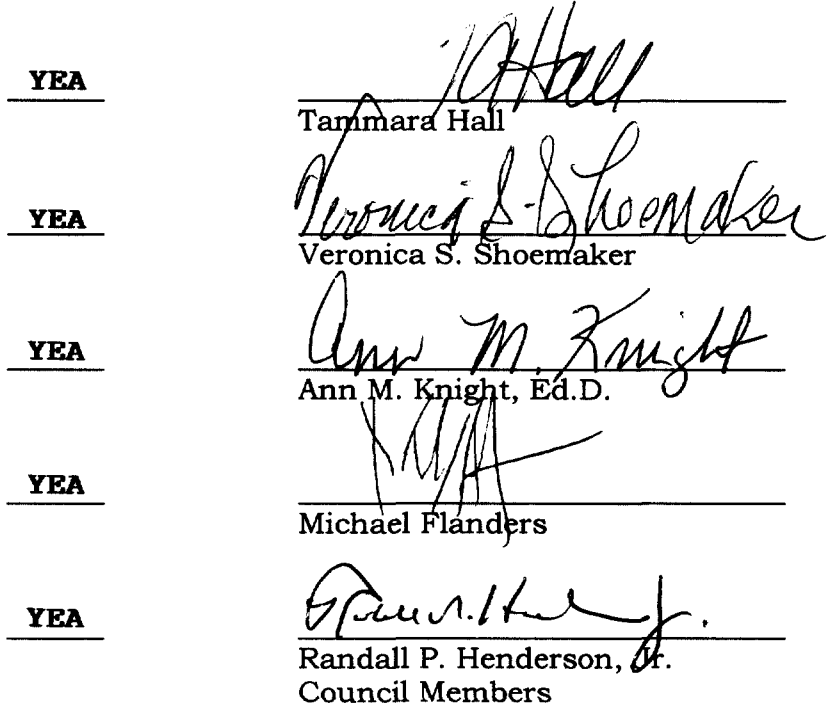 YEA T A Hall
Tammara Hall
YEA Veronica S. Shoemaker
Veronica S. Shoemaker
YEA Ann M. Knight
Ann M. Knight, Ed.D.
YEA
Michael Flanders
YEA Jr.
Randall P. Henderson, Jr.
Council Members